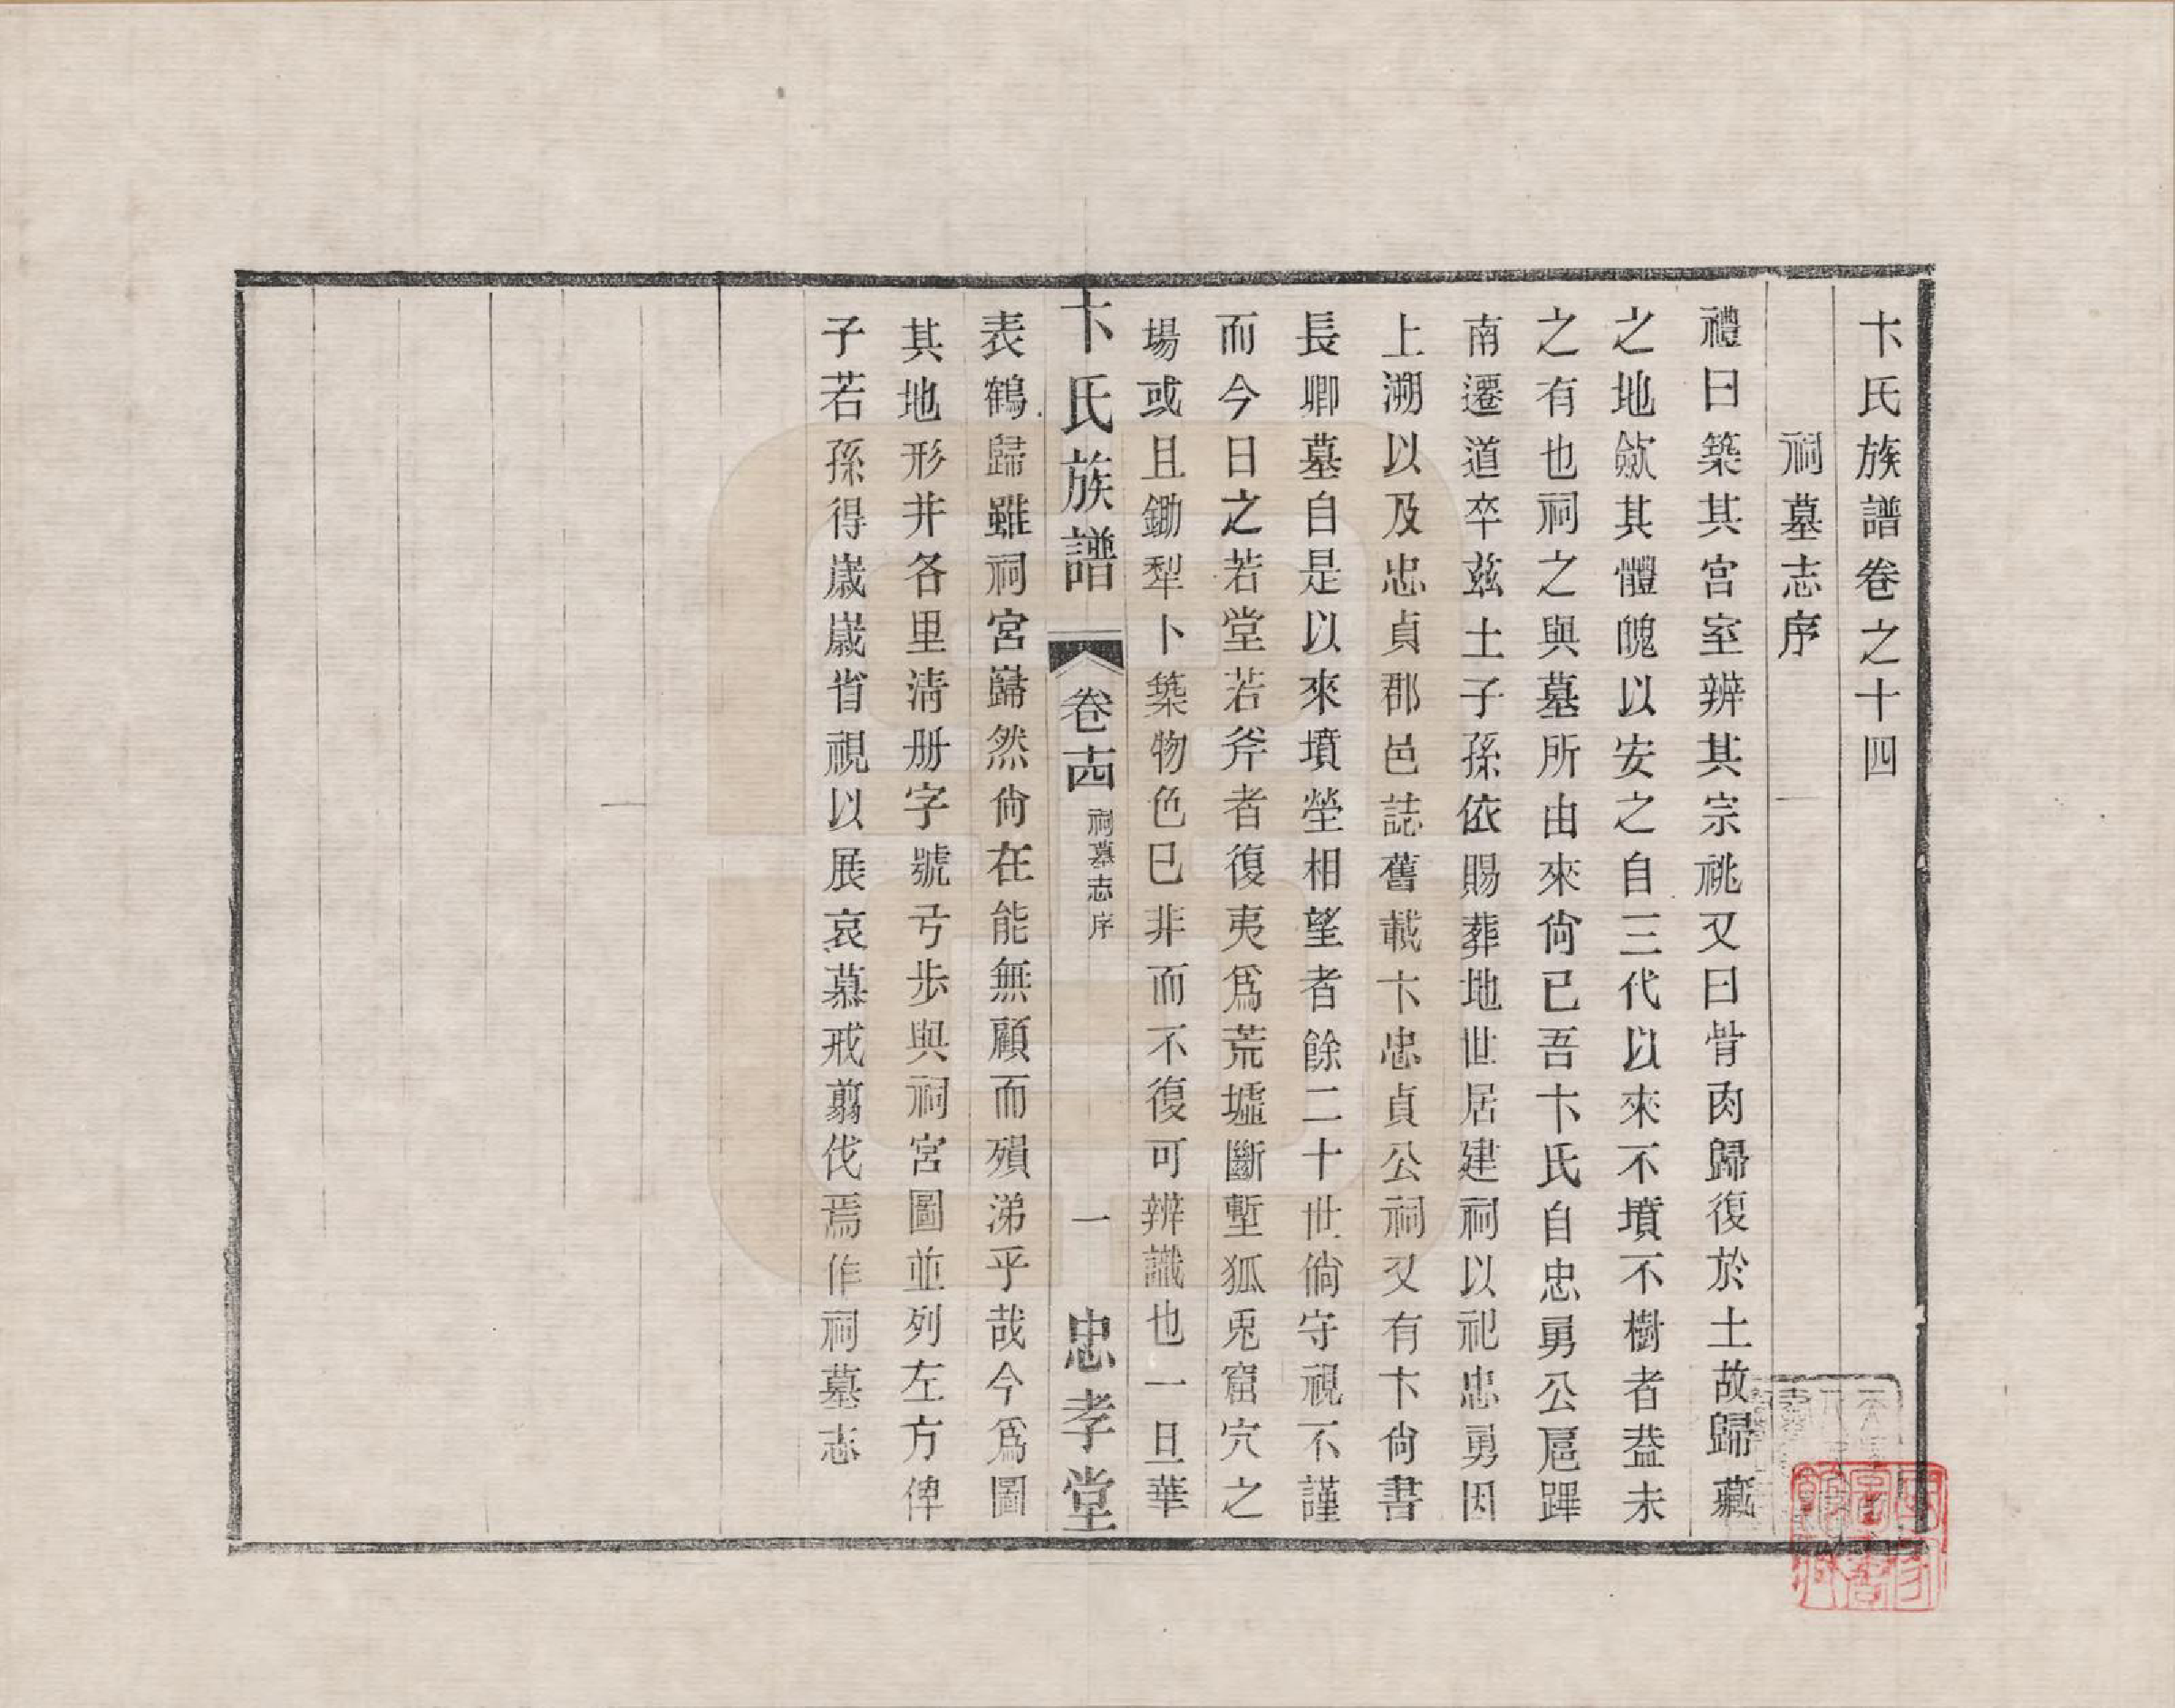 卞氏族譜卷之十四
祠墓志序
禮曰築其宮室辨其宗祧又曰骨肉歸復於土故歸藏
之地斂其體魄以安之自三代以來不墳不樹者葢未
之有也祠之與墓所由來尙已吾卞氏自忠勇公扈蹕
南遷道卒玆土子孫依賜葬地世居建祠以祀忠勇因
上溯以及忠貞郡邑誌舊載卞忠貞公祠又有卞尙書
長卿墓自是以來墳塋相望者餘二十世倘守視不謹
而今日之若堂若斧者復夷爲荒墟斷塹狐兎窟穴之
場或且鋤犁卜築物色已非而不復可辨識也一旦華
卞氏族譜 卷十四 祠墓志序 一 忠孝堂
表鶴歸雖祠宮巋然尙在能無顧而殞涕乎哉今爲圖
其地形井各里淸册字號弓步與祠宮圖並列左方俾
子若孫得歲歲省視以展哀慕戒翦伐焉作祠墓志